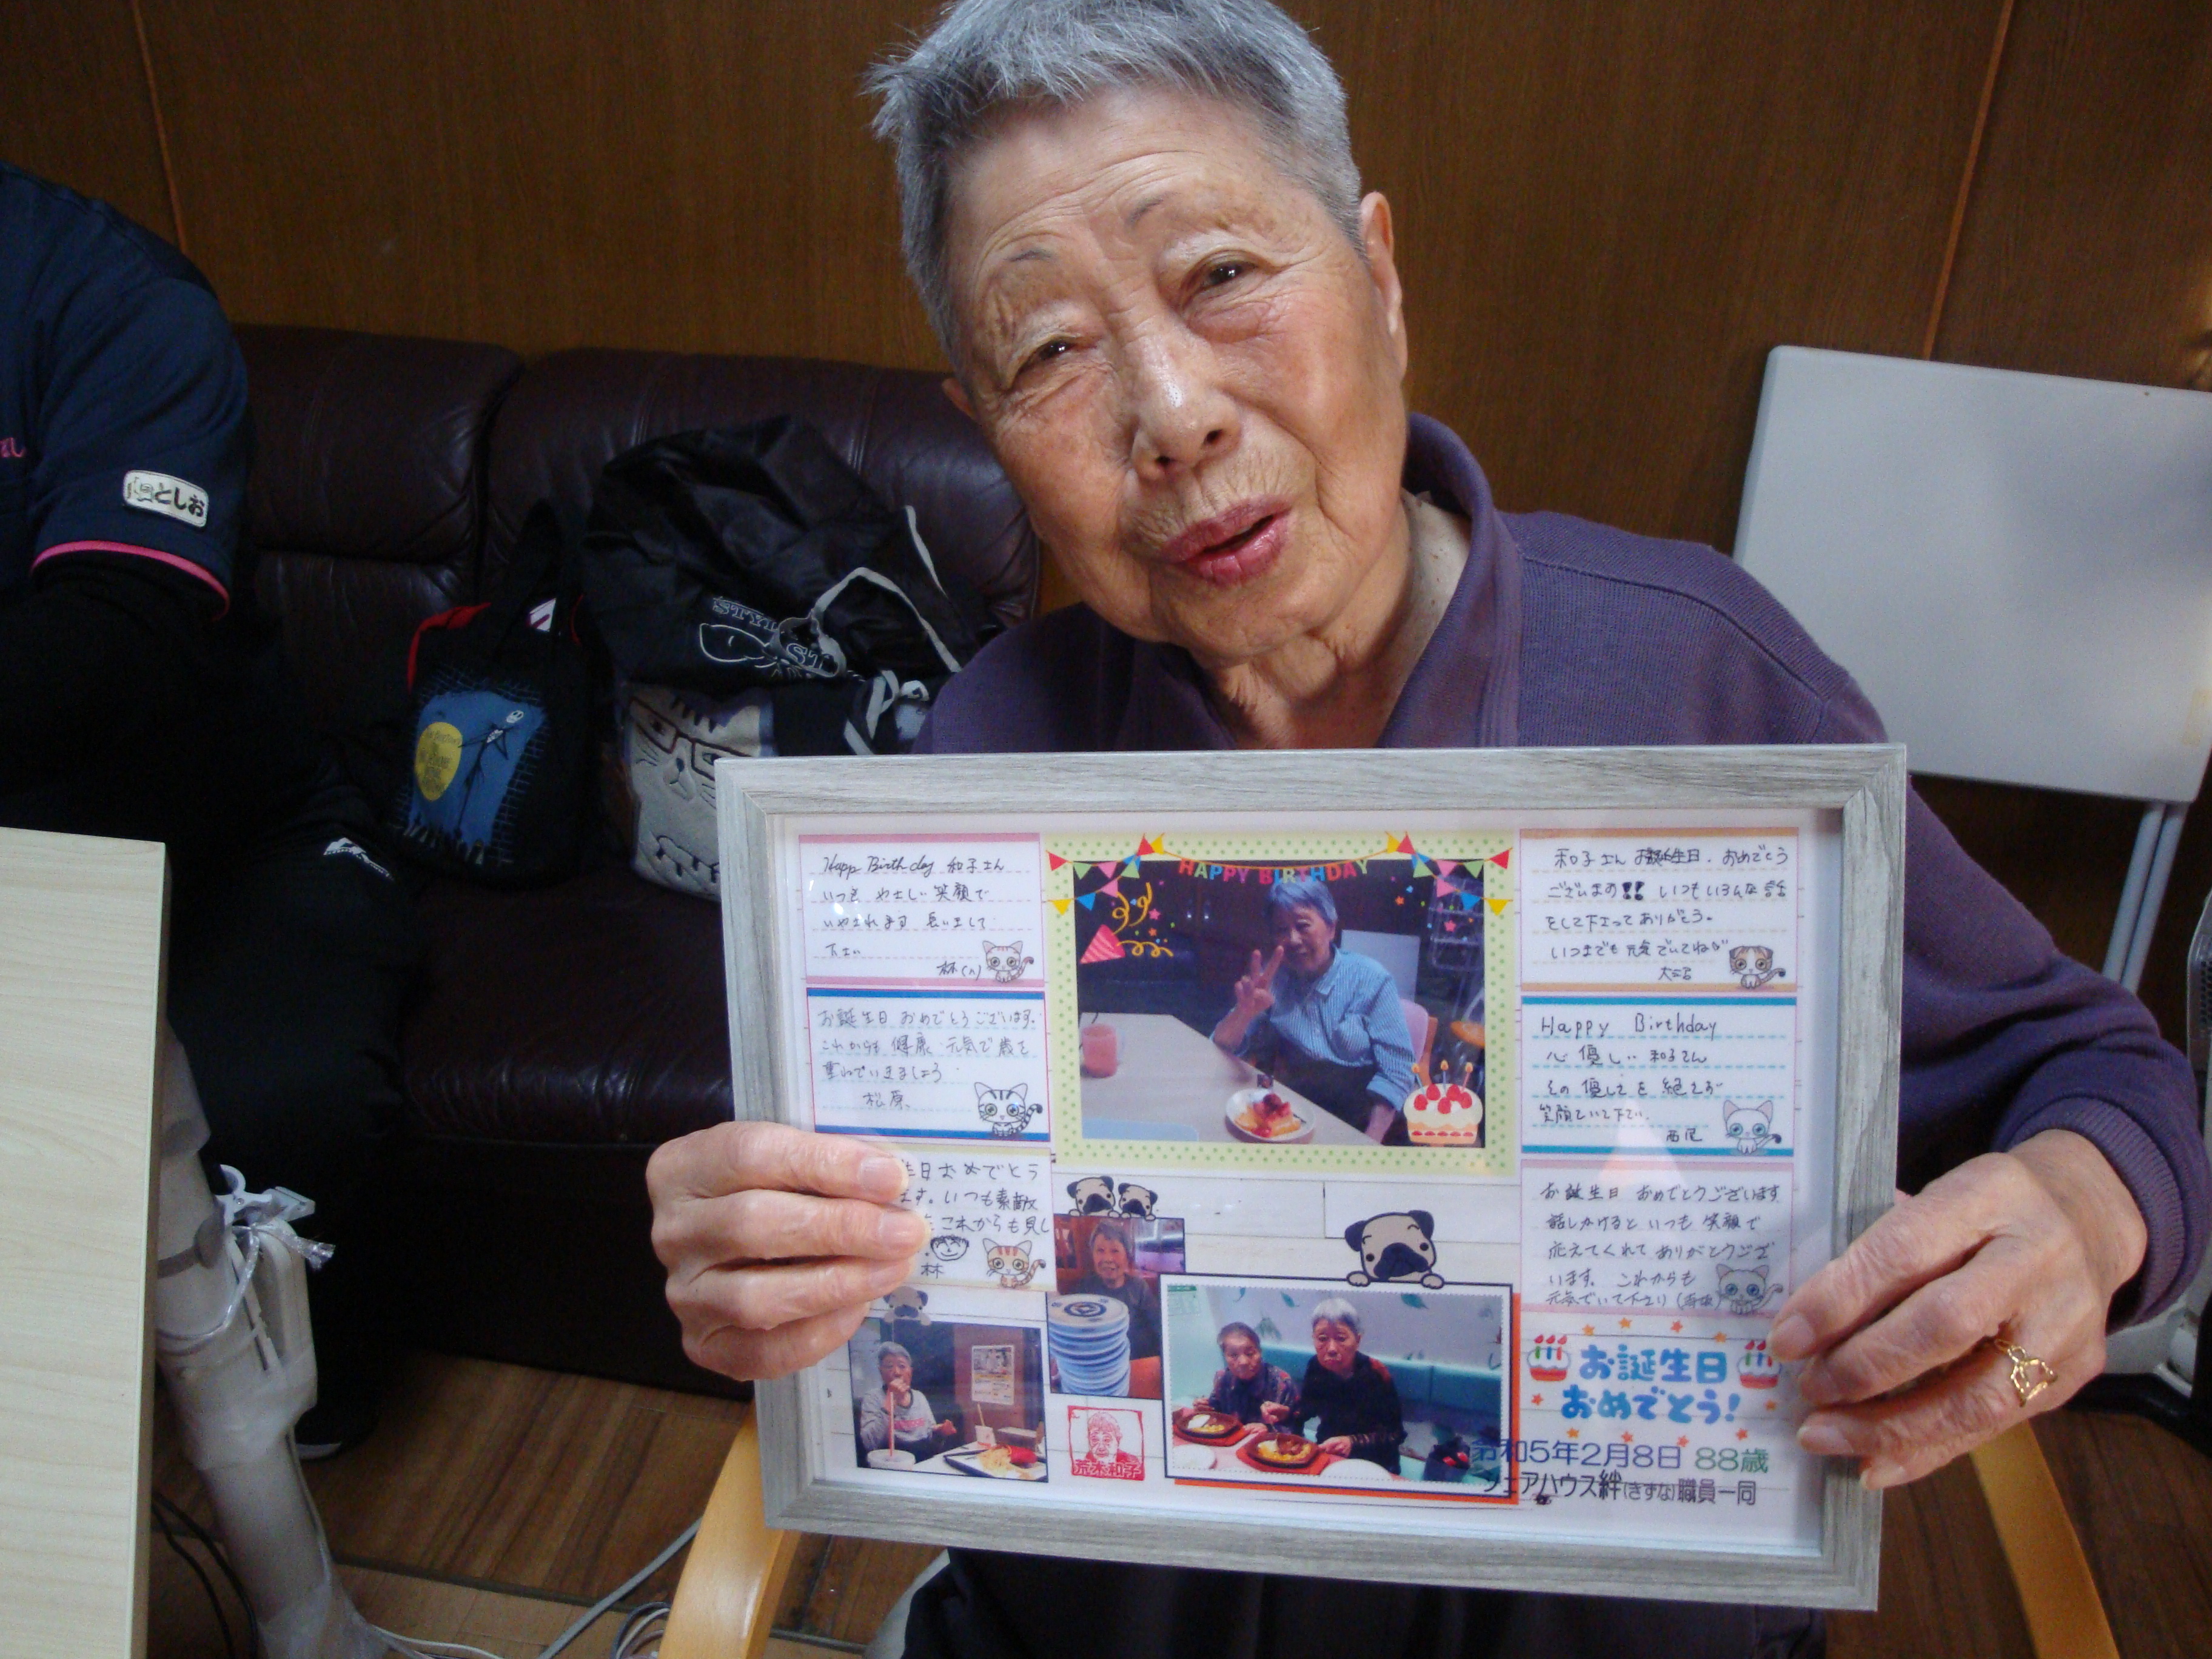 としお
Happ Birthday 和子さん
いつも やさしい 笑顔で
いやされます 長いきして
下さい
林(八)
お誕生日 おめでとうございます。
これからも 健康・元気で 歳を
重ねていきましょう
松原
生日おめでとう
ます。いつも素敵
これからも見し
林
HAPPY BIRTHDAY
和子さん お誕生日、おめでとう
ございます!! いつもいろんな話
をして下さってありがとう。
いつまでも元気でいてね
大沼
Happy Birthday
心優しい 和子さん
その優しさを 絶えず
笑顔でいて下さい。
西尾
お誕生日 おめでとうございます
話しかけると いつも 笑顔で
応えてくれて ありがとうござ
います。これからも
元気でいて下さい
荒木和子
お誕生日
おめでとう!
令和5年2月8日 88歳
シェアハウス絆(きずな)職員一同